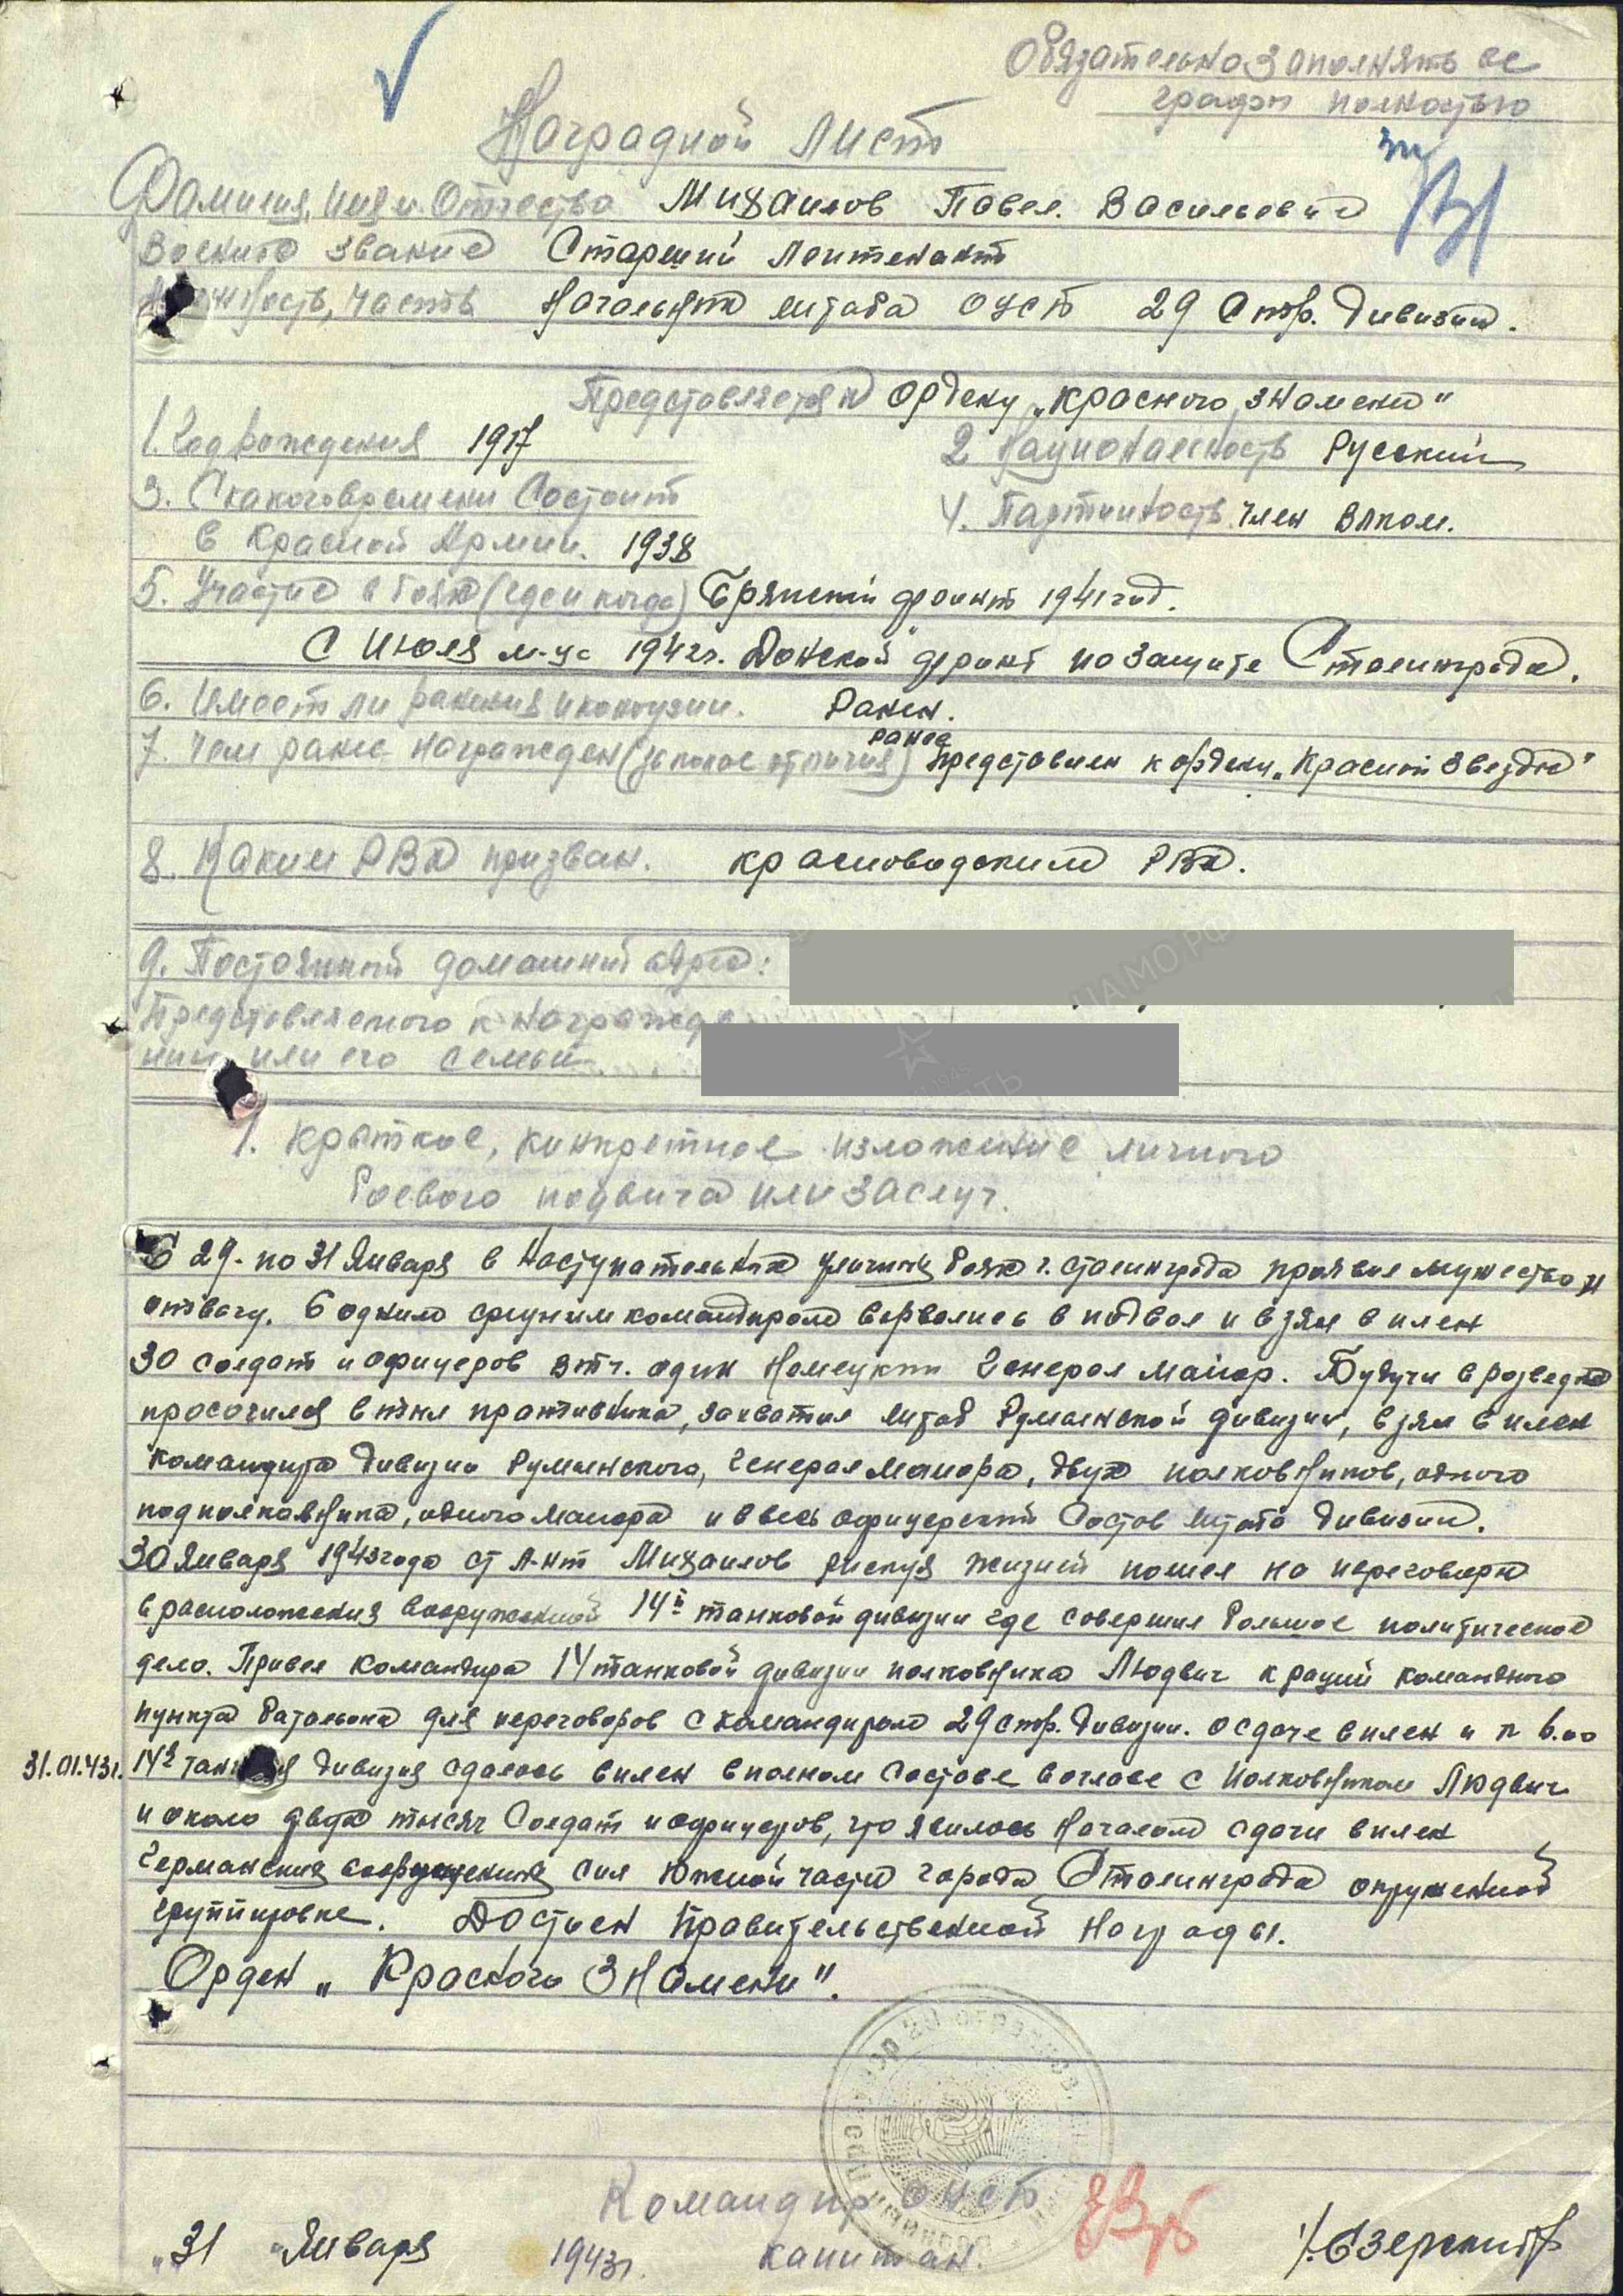 Обязательно заполнять все
графы полностью
Наградной лист
Фамилия, имя и Отчество Михайлов Павел Васильевич
Военное звание Старший лейтенант
Должность, часть Начальник штаба ОУСБ 29 Стр. дивизии.
Представляется к ордену „Красного знамени"
1. Год рождения 1917 2. Национальность Русский
3. С какого времени Состоит
в Красной Армии. 1938
4. Партийность член ВЛКСМ.
5. Участие в боях (где и когда) Брянский фронт 1941 год.
С Июля м-ца 1942г. Донской фронт по защите Сталинграда.
6. Имеет ли ранения и контузии. Ранен.
7. Чем ранее награжден (за какие отличия) ранее представлен к ордену „Красной Звезды"
8. Каким РВК призван. Красноводским РВК.
9. Постоянный домашний адрес:
Представляемого к награжде
нию или его семьи
1. Краткое, конкретное изложение личного
боевого подвига или заслуг.
С 29. по 31 Января в наступательных уличных боях г. Сталинграда проявил мужество и
отвагу. С одним средним командиром ворвались в подвал и взял в плен
30 солдат и офицеров в т.ч. один Немецкий Генерал майор. Будучи в разведке
просочился в тыл противника, захватил штаб Румынской дивизии, взял в плен
командира дивизии Румынского, Генерал майора, двух полковников, одного
подполковника, одного майора и весь офицерский Состав штаба дивизии.
30 Января 1943 года ст л-нт Михайлов рискуя жизнью пошел на переговоры
в расположения вооруженной 14й танковой дивизии где совершил большое политическое
дело. Привел командира 14 танковой дивизии полковника Людвиг к рации командного
пункта батальона для переговоров с командиром 29 стр. дивизии. о сдаче в плен и к 6.00
31.01.43г. 14я танковая дивизия сдалась в плен в полном составе во главе с Полковником Людвиг
и около двух тысяч Солдат и офицеров, что явилось Началом сдачи в плен
Германских вооруженных сил Южной части города Сталинграда окруженной
группировке. Достоен Правительственной Награды.
Орден „Красного Знамени".
Командир ОУСБ
„31 Января 1943г. капитан. /Озерский/